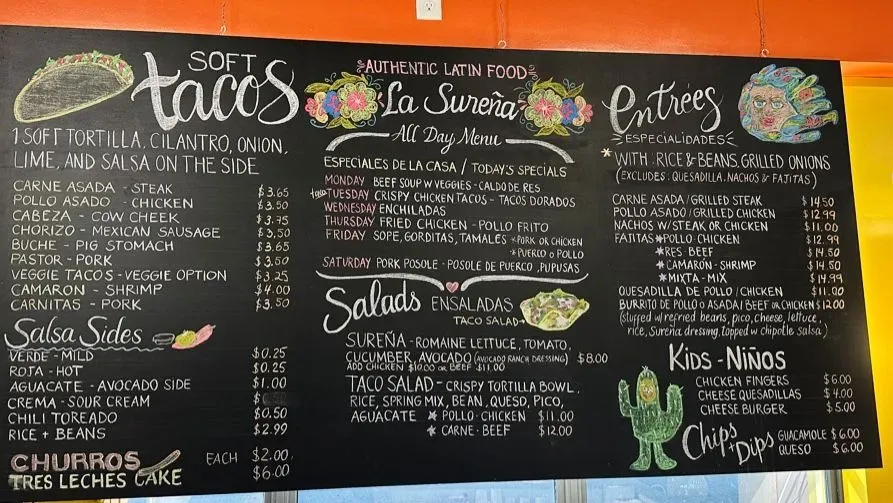 SOFT
tacos
1 SOFT TORTILLA, CILANTRO, ONION,
LIME, AND SALSA ON THE SIDE
CARNE ASADA - STEAK $3.65
POLLO ASADO - CHICKEN $3.50
CABEZA - COW CHEEK $3.75
CHORIZO - MEXICAN SAUSAGE $3.50
BUCHE - PIG STOMACH $3.65
PASTOR - PORK $3.50
VEGGIE TACOS - VEGGIE OPTION $3.25
CAMARON - SHRIMP $4.00
CARNITAS - PORK $3.50
Salsa Sides
VERDE - MILD $0.25
ROJA - HOT $0.25
AGUACATE - AVOCADO SIDE $1.00
CREMA - SOUR CREAM $
CHILI TOREADO $0.50
RICE + BEANS $2.99
CHURROS EACH $2.00
TRES LECHES CAKE $6.00
AUTHENTIC LATIN FOOD
La Sureña
All Day Menu
ESPECIALES DE LA CASA / TODAY'S SPECIALS
MONDAY BEEF SOUP W VEGGIES - CALDO DE RES
TUESDAY CRISPY CHICKEN TACOS - TACOS DORADOS
WEDNESDAY ENCHILADAS
THURSDAY FRIED CHICKEN - POLLO FRITO
FRIDAY SOPE, GORDITAS, TAMALES *PORK OR CHICKEN
*PUERCO O POLLO
SATURDAY PORK POSOLE - POSOLE DE PUERCO, PUPUSAS
Salads ENSALADAS
TACO SALAD→
SUREÑA - ROMAINE LETTUCE, TOMATO,
CUCUMBER, AVOCADO (AVOCADO RANCH DRESSING) $8.00
ADD CHICKEN $10.00 OR BEEF $11.00
TACO SALAD - CRISPY TORTILLA BOWL,
RICE, SPRING MIX, BEAN, QUESO, PICO,
AGUACATE * POLLO - CHICKEN $11.00
* CARNE - BEEF $12.00
Entrées
ESPECIALIDADES
*WITH: RICE & BEANS, GRILLED ONIONS
(EXCLUDES: QUESADILLA, NACHOS & FAJITAS)
CARNE ASADA/GRILLED STEAK $14.50
POLLO ASADO/GRILLED CHICKEN $12.99
NACHOS W/STEAK OR CHICKEN $11.00
FAJITAS *POLLO - CHICKEN $12.99
*RES - BEEF $14.50
*CAMARÓN - SHRIMP $14.50
*MIXTA - MIX $14.99
QUESADILLA DE POLLO / CHICKEN $11.00
BURRITO DE POLLO O ASADA/BEEF OR CHICKEN $12.00
(stuffed w/refried beans, pico, cheese, lettuce,
rice, Sureña dressing, topped w chipotle salsa)
KIDS - NIÑOS
CHICKEN FINGERS $6.00
CHEESE QUESADILLAS $4.00
CHEESE BURGER $5.00
Chips + Dips
GUACAMOLE $6.00
QUESO $6.00